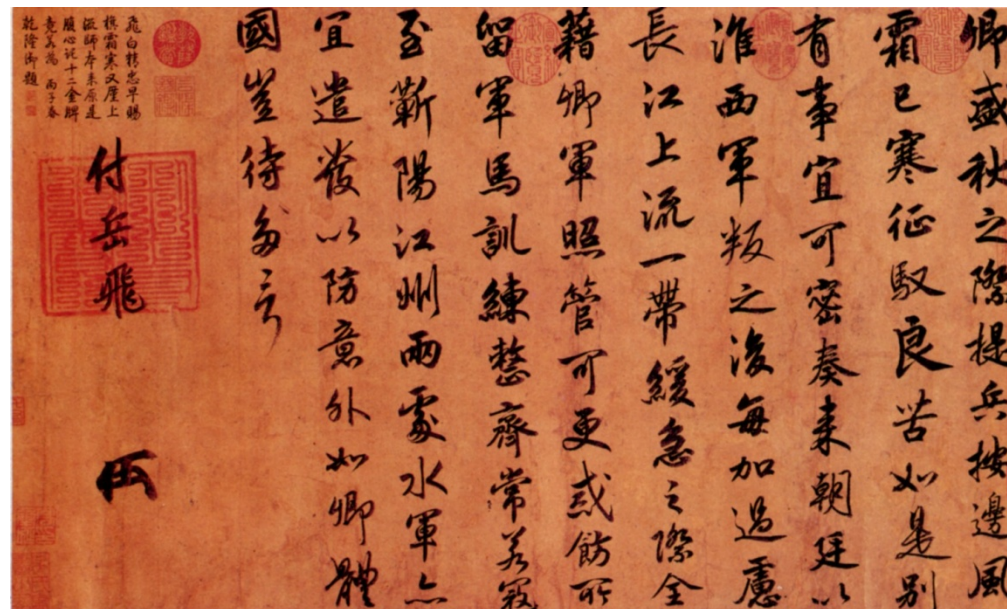 卿盛秋之際提兵按邊風
霜已寒征馭良苦如是別
有事宜可密奏來朝廷以
淮西軍叛之後每加過慮
長江上流一帶緩急之際全
藉卿軍照管可更戒飭所
留軍馬訓練整齊常若寇
至蘄陽江州兩處水軍亦
宜遣發以防意外如卿體
國豈待多言
付岳飛
飛白精忠早賜
旗霜寒又屢上
游師本來原是
腹心託十二金牌
竟若為 丙子春
乾隆御題